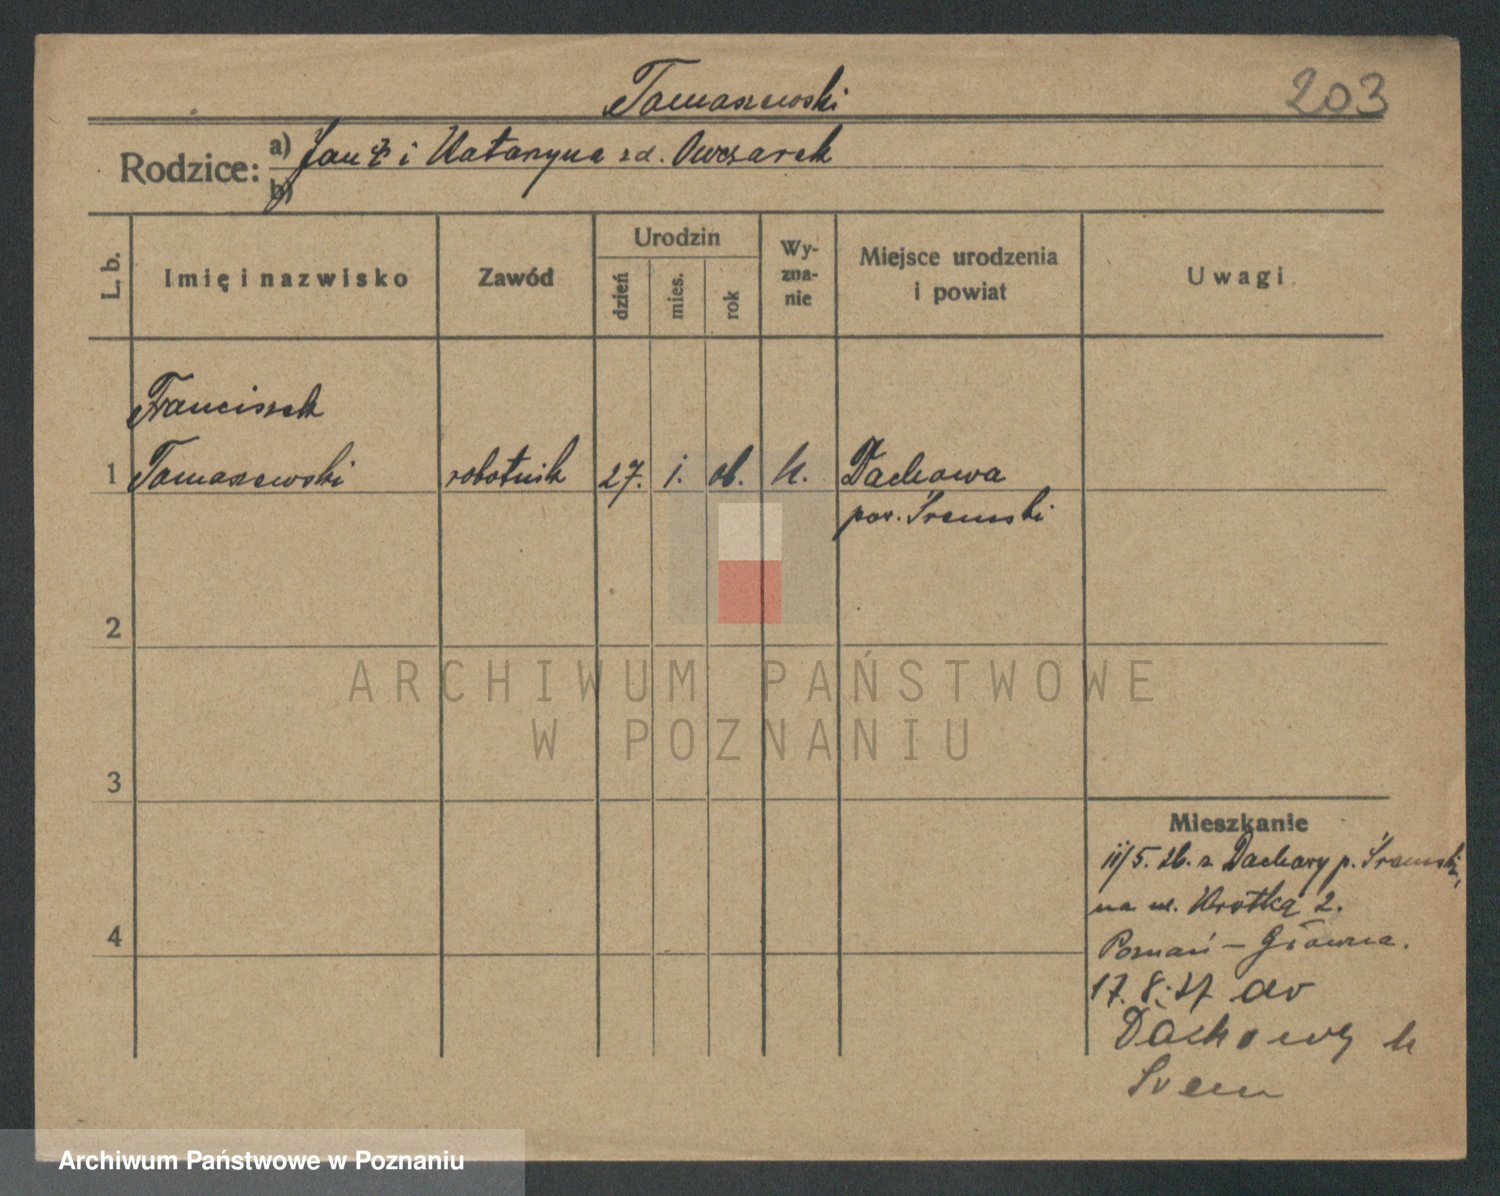 Tomaszewski
203
Rodzice: a) Jan i Katarzyna zd. Owczarek
b)
L. b.
Imię i nazwisko
Zawód
Urodzin
dzień
mies.
rok
Wy-
zna-
nie
Miejsce urodzenia
i powiat
Uwagi
Franciszek
1 Tomaszewski robotnik 27. 1. 06. k. Dachowa
pow. Śremski
2
3
4
ARCHIWUM PAŃSTWOWE
W POZNANIU
Mieszkanie
11/5. 26. z Dachowy p. Śremski,
na ul. Krótką 2.
Poznań – Główna.
17. 8. 27 do
Dachowy k
Śrem
Archiwum Państwowe w Poznaniu